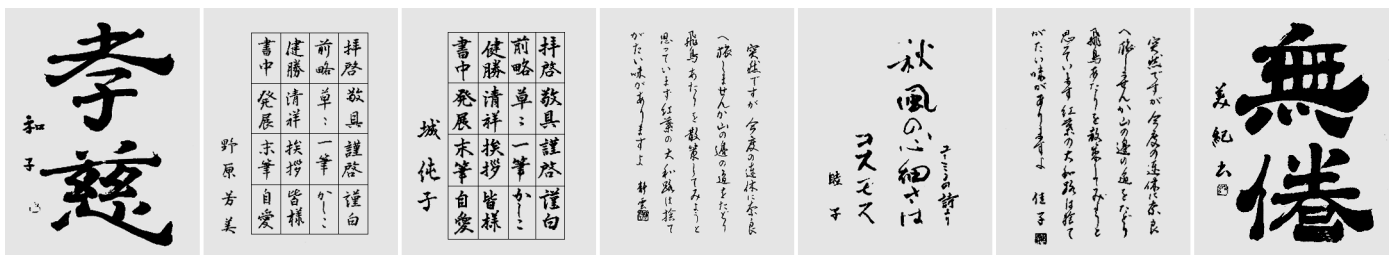 孝慈
和子
拝啓 敬具 謹啓 謹白
前略 草々 一筆 かしこ
健勝 清祥 挨拶 皆様
書中 発展 末筆 自愛
野原芳美
拝啓 敬具 謹啓 謹白
前略 草々 一筆 かしこ
健勝 清祥 挨拶 皆様
書中 発展 末筆 自愛
城純子
突然ですが今度の連休に奈良
へ旅しませんか山の邊の道をたどり
飛鳥あたりを散策してみようと
思っています紅葉の大和路は捨て
がたい味がありますよ
ユーミンの詩より
秋風の心細さは
コスモス
睦子
突然ですが今度の連休に奈良
へ旅しませんか山の邊の道をたどり
飛鳥あたりを散策してみようと
思っています紅葉の大和路は捨て
がたい味がありますよ 佳子
無倦
美紀